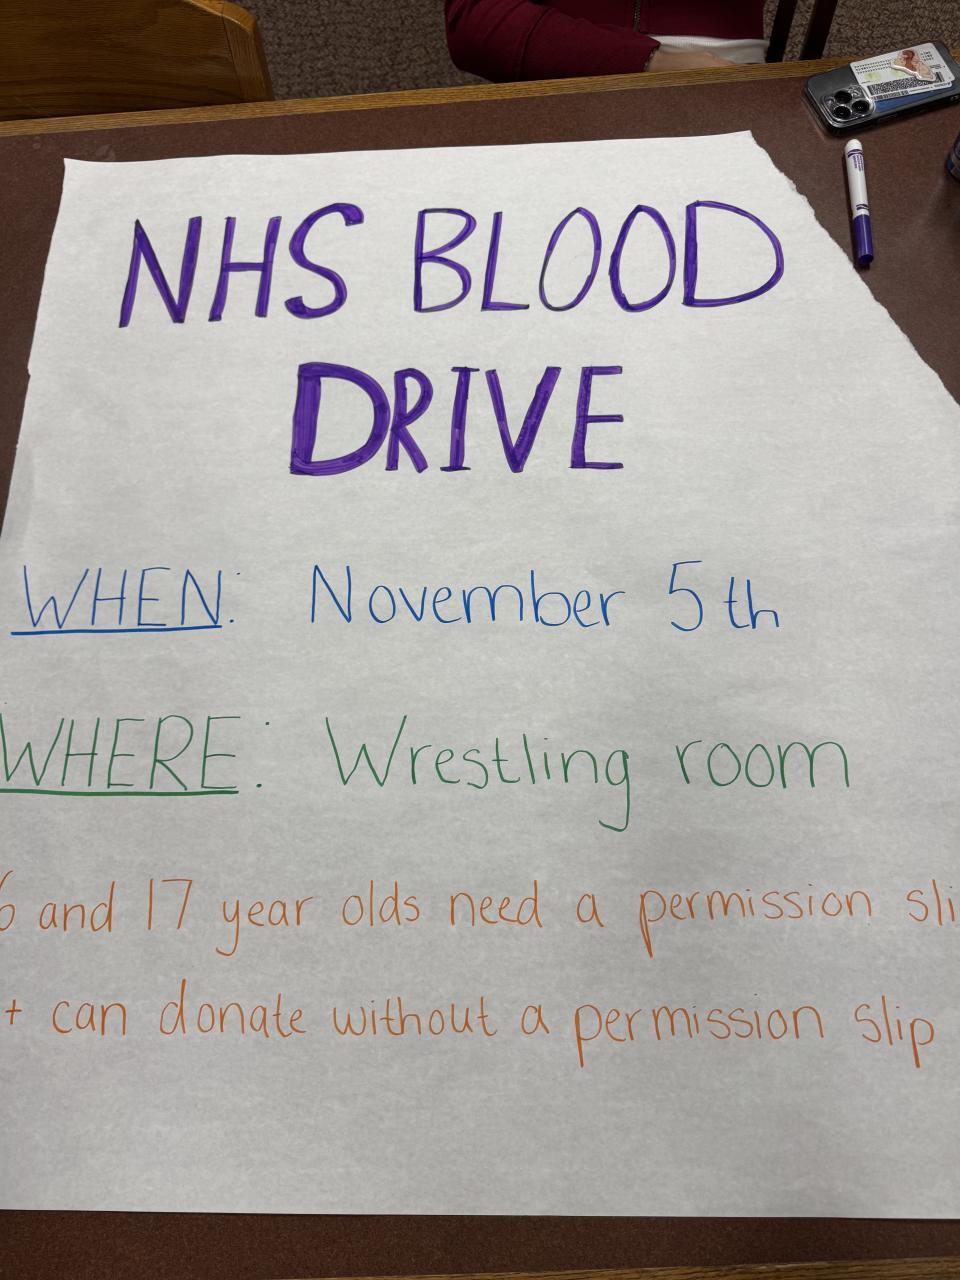 NHS BLOOD
DRIVE
WHEN: November 5th
WHERE: Wrestling room
6 and 17 year olds need a permission sli
+ can donate without a permission slip